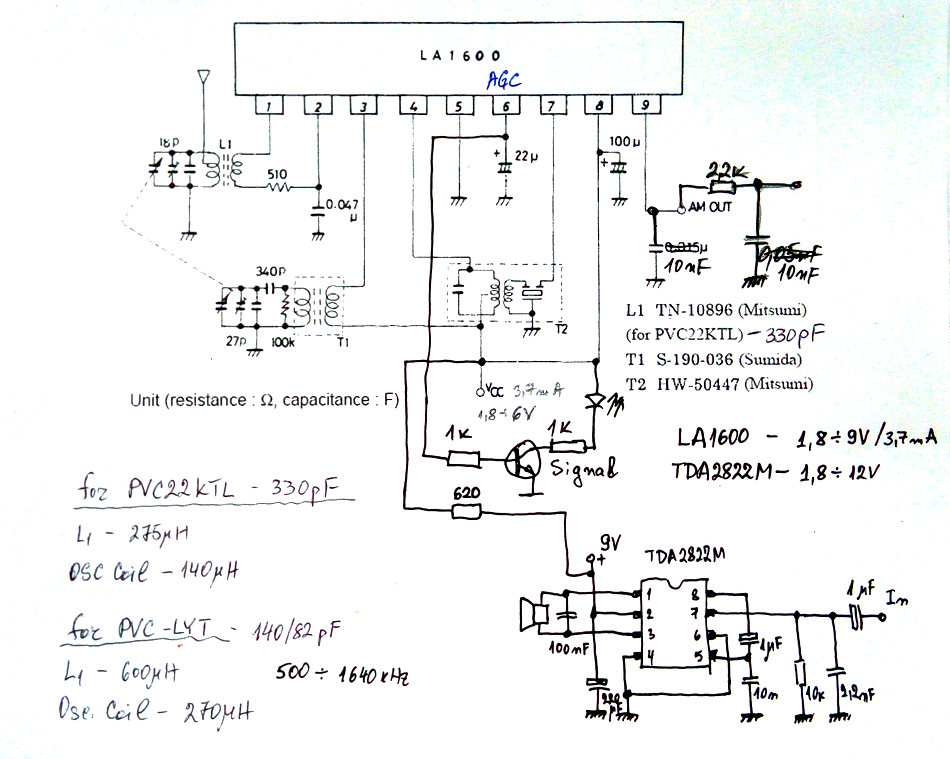 LA1600
AGC
1 2 3 4 5 6 7 8 9
18P
L1
510
0.047
μ
22μ
100μ
2,2K
AM OUT
0.015μ
10nF
10nF
340P
27P
100k
T1
T2
L1 TN-10896 (Mitsumi)
(for PVC22KTL) - 330pF
T1 S-190-036 (Sumida)
T2 HW-50447 (Mitsumi)
Unit (resistance : Ω, capacitance : F)
VCC 3,7mA
1,8÷6V
1K
1K
Signal
LA1600 - 1,8÷9V/3,7mA
TDA2822M - 1,8÷12V
for PVC22KTL - 330pF
L1 - 275μH
OSC Coil - 140μH
620
9V
+
TDA2822M
1 8
2 7
3 6
4 5
100nF
220
μF
1μF
10n
10k
2,2nF
1μF
In
for PVC-LYT - 140/82pF
L1 - 600μH
500÷1640kHz
Osc. Coil - 270μH